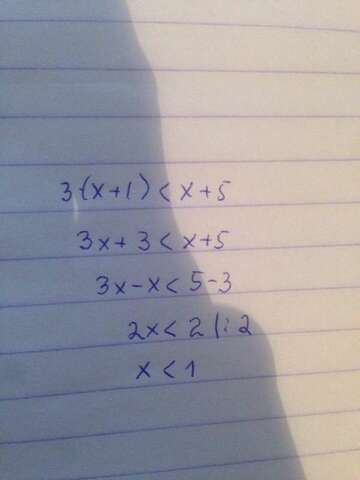 3·(x+1) < x+5
3x+3 < x+5
3x-x < 5-3
2x < 2 |:2
x < 1